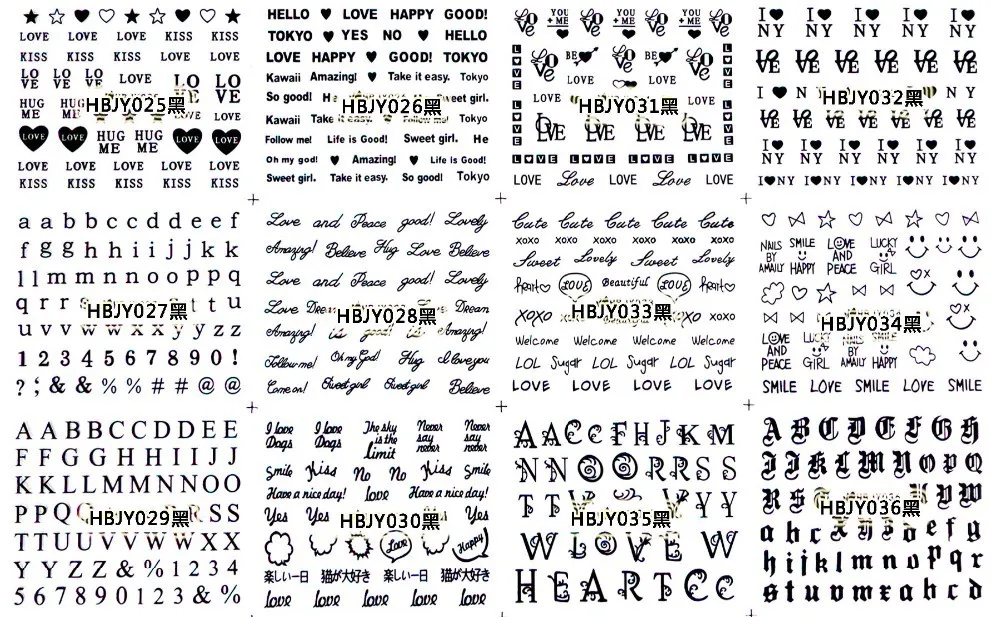 LOVE LOVE LOVE KISS KISS
KISS KISS LOVE LOVE LOVE
LO VE LO VE LO VE LOVE LO VE LO VE
HUG ME HUG
HBJY025黑
LOVE
LOVE LOVE HUG ME HUG ME LOVE LOVE
LOVE LOVE LOVE LOVE LOVE
KISS KISS KISS KISS KISS
HELLO LOVE HAPPY GOOD!
TOKYO YES NO HELLO
LOVE HAPPY GOOD! TOKYO
Kawaii Amazing! Take it easy. Tokyo
So good!
HBJY026黑
Sweet girl.
Kawaii Take Follow me! Tokyo
Follow me! Life is Good! Sweet girl. He
Oh my god! Amazing! Life is Good!
Sweet girl. Take it easy. So good! Tokyo
LOVE YOU + ME LOVE YOU + ME LOVE LOVE YOU + ME LOVE
LOVE LOVE BE LOVE BE LOVE LOVE
LOVE LOVE
LOVE
HBJY031黑
LOVE
LOVE LOVE LOVE LOVE LOVE LOVE
L VE L VE L VE L VE
LOVE Love LOVE Love LOVE
I NY I NY I NY I NY I NY
LOVE LOVE LOVE LOVE LOVE LOVE
I NY
HBJY032黑
NY
LOVE LOVE LOVE LOVE LOVE LOVE
I NY I NY I NY I NY I NY I NY
I NY I NY I NY I NY I NY
a a b b c c d d e e f
f g g h h i i j j k k
l l m m n n o o p p q
q r r s
HBJY027黑
t t u
u v v w w x x y y z z
1 2 3 4 5 6 7 8 9 0 !
? ; & & % % # # @ @
Love and Peace good! Lovely
Amazing! Believe Hug Love Believe
Love and Peace good! Lovely
Love Dream
HBJY028黑
Dream
Amazing! is good! is Amazing!
Follow me! Oh my God! Hug I love you
Come on! Sweet girl Sweet girl Believe
Cute Cute Cute Cute Cute
XOXO XOXO XOXO XOXO XOXO
Sweet Lovely Sweet Lovely
Heart LOVE Beautiful LOVE Heart
XOXO XOXO
HBJY033黑
XOXO XOXO
Welcome Welcome Welcome Welcome Welcome
LOL Sugar LOL Sugar LOL Sugar
LOVE LOVE LOVE LOVE
NAILS BY AMAILY SMILE HAPPY LOVE AND PEACE LUCKY GIRL
HBJY034黑
LOVE AND PEACE LUCKY GIRL NAILS BY AMAILY SMILE HAPPY
SMILE LOVE SMILE LOVE SMILE
A A B B C C D D E E
F F G G H H I I J J
K K L L M M N N O O
P P Q
HBJY029黑
R S S
T T U U V V W W X X
Y Y Z Z & % 1 2 3 4
5 6 7 8 9 0 1 2 3 & %
I love Dogs I love Dogs The sky is the limit Never say never Never say never
Smile Kiss No No Kiss Smile
Have a nice day! love Have a nice day!
Yes Yes
HBJY030黑
Yes
Love Happy
楽しい一日 猫が大好き 楽しい一日 猫が大好き
love love love love love
A A C C F H J K M
N N O O R R S S
T T V
HBJY035黑
Y Y
W L O V E W
H E A R T C C
A B C D E F G H
I J K L M N O P Q
R S
HBJY036黑
V W
a b c d e f g
h i j k l m n o p q r
s t u v m x a b c d